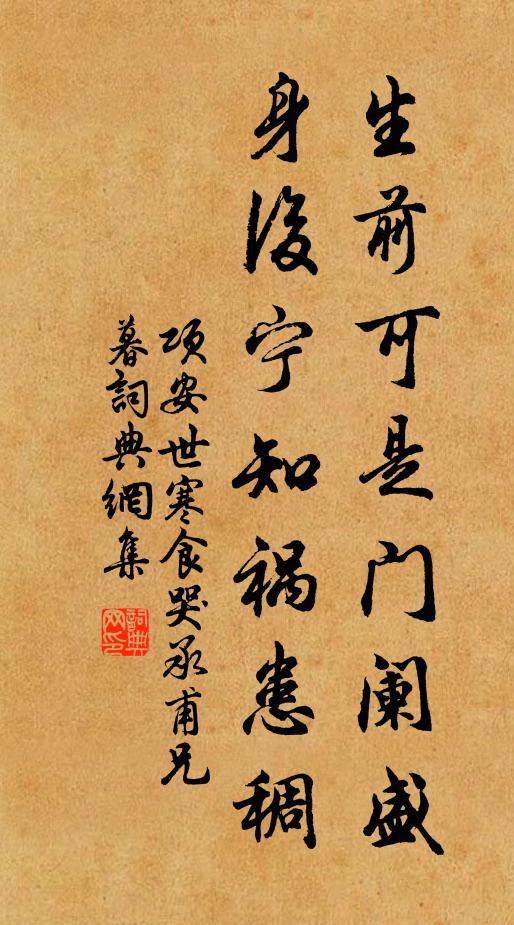 生前可是门阑盛
身後宁知祸患稠
项安世寒食哭承甫兄
墓詞典網集
詞典網印